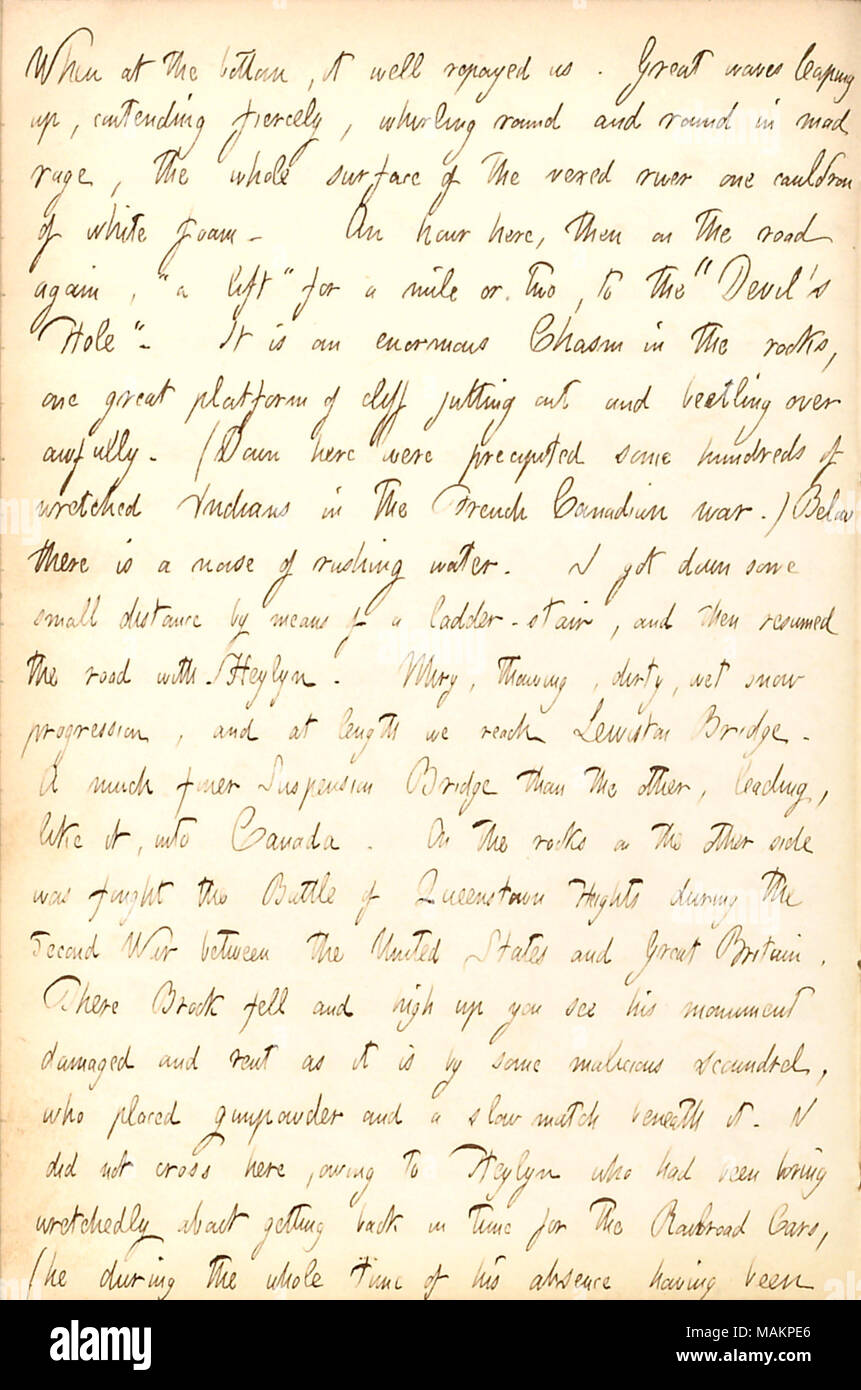 When at the bottom, it well repayed us. Great waves leaping
up, contending fiercely, whirling round and round in mad
rage, the whole surface of the vexed river one cauldron
of white foam - An hour here, then on the road
again, "a lift" for a mile or two, to the "Devil's
Hole" - It is an enormous Chasm in the rocks,
one great platform of cliff jutting out and beetling over
awfully - (Down here were precipited some hundreds of
wretched Indians in the French Canadian war.) Below
there is a noise of rushing water. I got down some
small distance by means of a ladder-stair, and then resumed
the road with Heylyn. Miry, thawing, dirty, wet snow
progression, and at length we reach Lewiston Bridge -
A much finer Suspension Bridge than the other, leading,
like it, into Canada. On the rocks on the other side
was fought the Battle of Queenstown Heights during the
Second War between the United States and Great Britain.
There Brock fell and high up you see his monument
damaged and rent as it is by some malicious scoundrel,
who placed gunpowder and a slow match beneath it. I
did not cross here, owing to Heylyn who had been boring
wretchedly about getting back in time for the Railroad Cars,
(he during the whole time of his absence having been
alamy
Image ID: MAKPE6
www.alamy.com